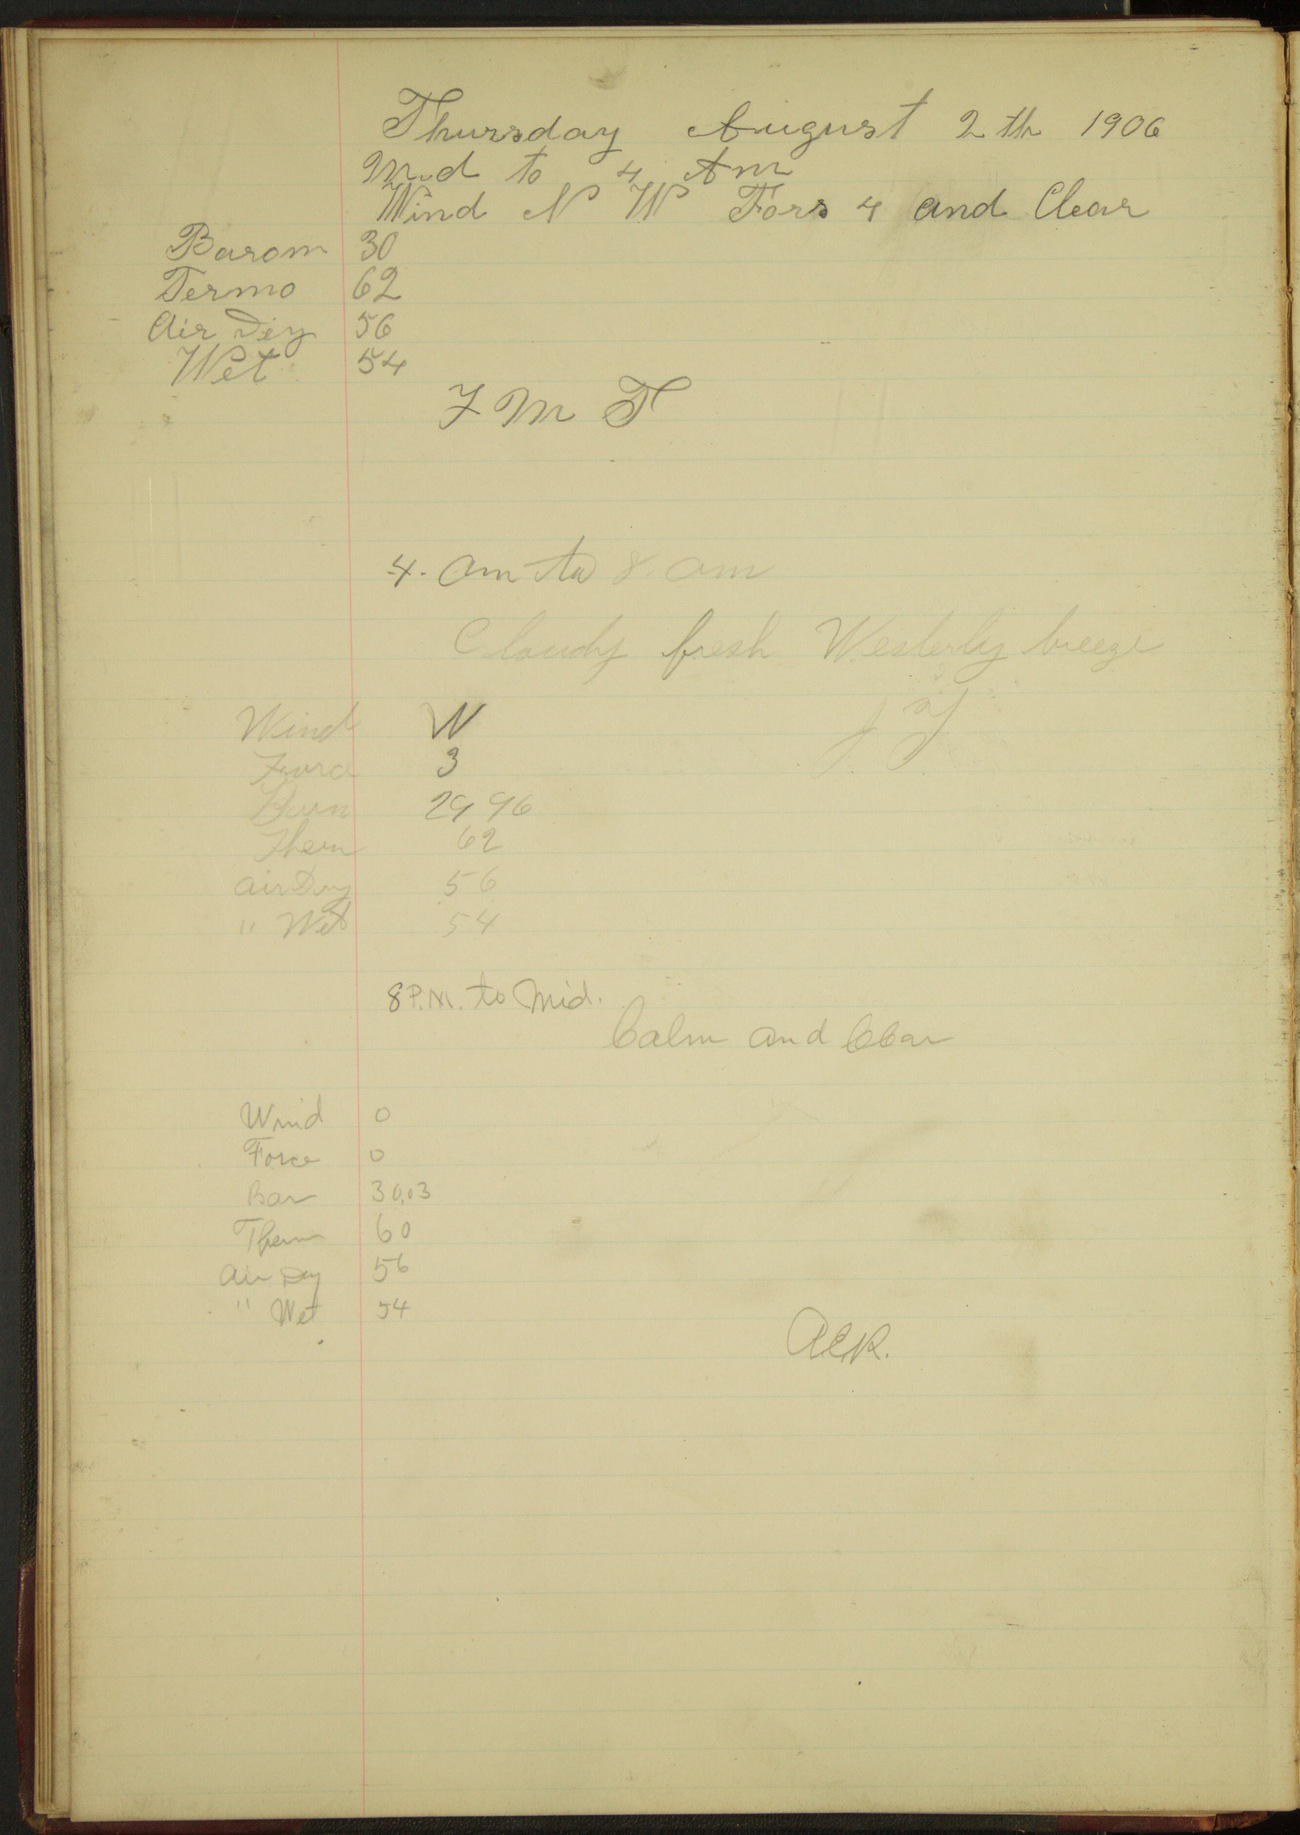 Thursday August 2th 1906
Mid to 4 Am
Wind N W Fors 4 and Clear
Barom 30
Termo 62
Air Dry 56
Wet 54
F M T
4. am to 8. am
Cloudy fresh Westerly breeze
Wind W
Force 3
Barm 29 96
Therm 62
air Dry 56
" Wet 54
8 P.M. to Mid.
Calm and Clear
Wind 0
Force 0
Bar 30.03
Therm 60
Air Dry 56
" Wet 54